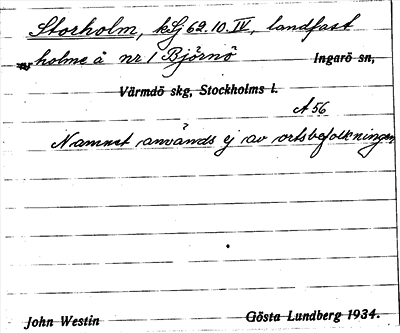 Storholm, kSj 62.10.IV, landfast
holme å nr 1 Björnö Ingarö sn,
Värmdö skg, Stockholms l.
A 56
Namnet används ej av ortsbefolkningen
John Westin Gösta Lundberg 1934.